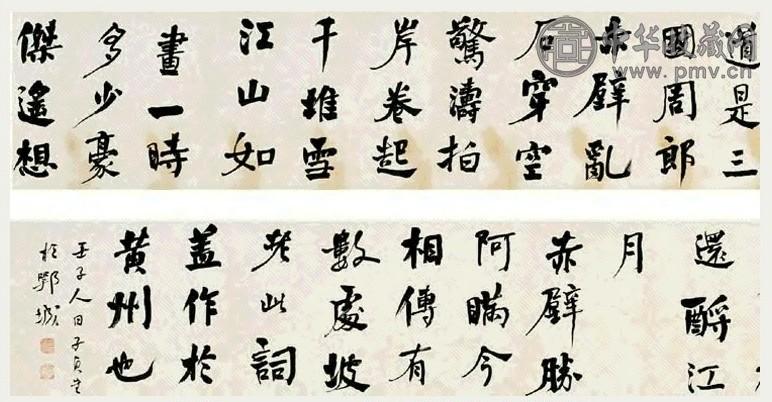 道是三
國周郎
赤壁亂
石穿空
驚濤拍
岸卷起
千堆雪
江山如
畫一時
多少豪
傑遙想
還酹江
月
赤壁勝
阿瞞今
相傳有
數處坡
老此詞
盖作於
黄州也
壬子人日子貞書
於鄂城
中华收藏网
www.pmv.cn